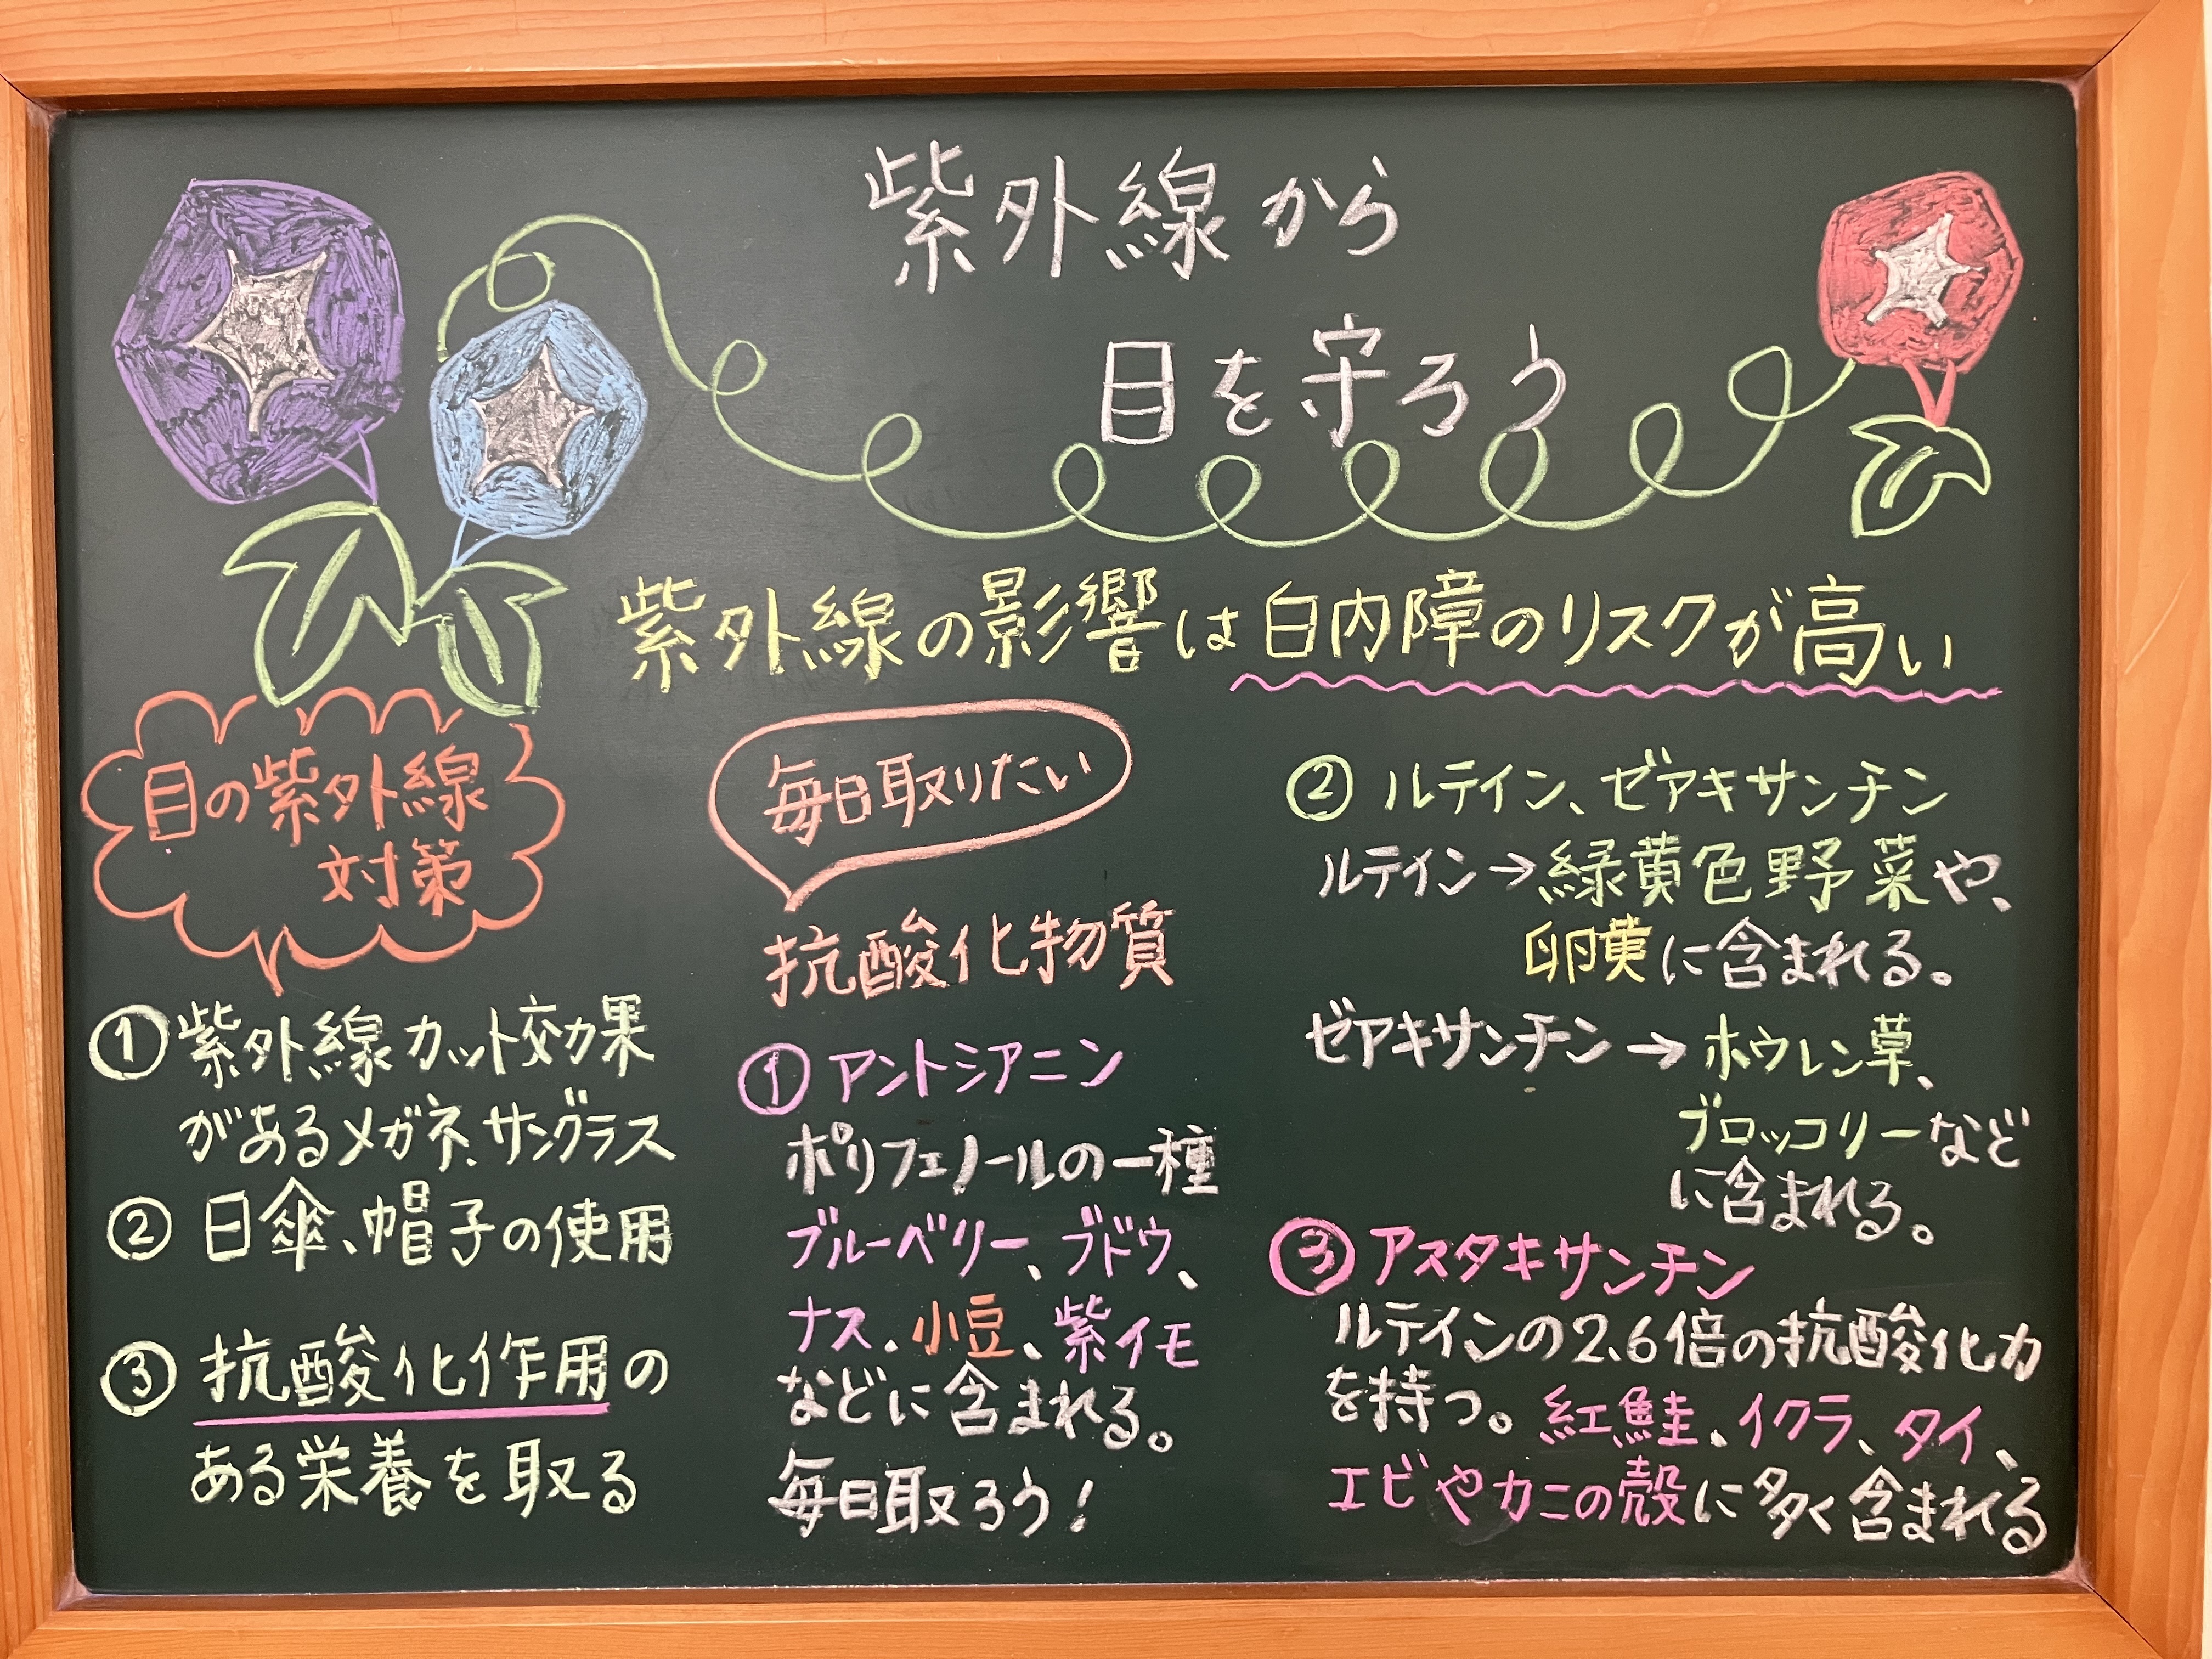 紫外線から
目を守ろう
紫外線の影響は白内障のリスクが高い
目の紫外線
対策
①紫外線カット効果
があるメガネ、サングラス
②日傘、帽子の使用
③抗酸化作用の
ある栄養を取る
毎日取りたい
抗酸化物質
①アントシアニン
ポリフェノールの一種
ブルーベリー、ブドウ、
ナス、小豆、紫イモ
などに含まれる。
毎日取ろう!
②ルテイン、ゼアキサンチン
ルテイン→緑黄色野菜や、
卵黄に含まれる。
ゼアキサンチン→ホウレン草、
ブロッコリーなど
に含まれる。
③アスタキサンチン
ルテインの2.6倍の抗酸化力
を持つ。紅鮭、イクラ、タイ、
エビやカニの殻に多く含まれる